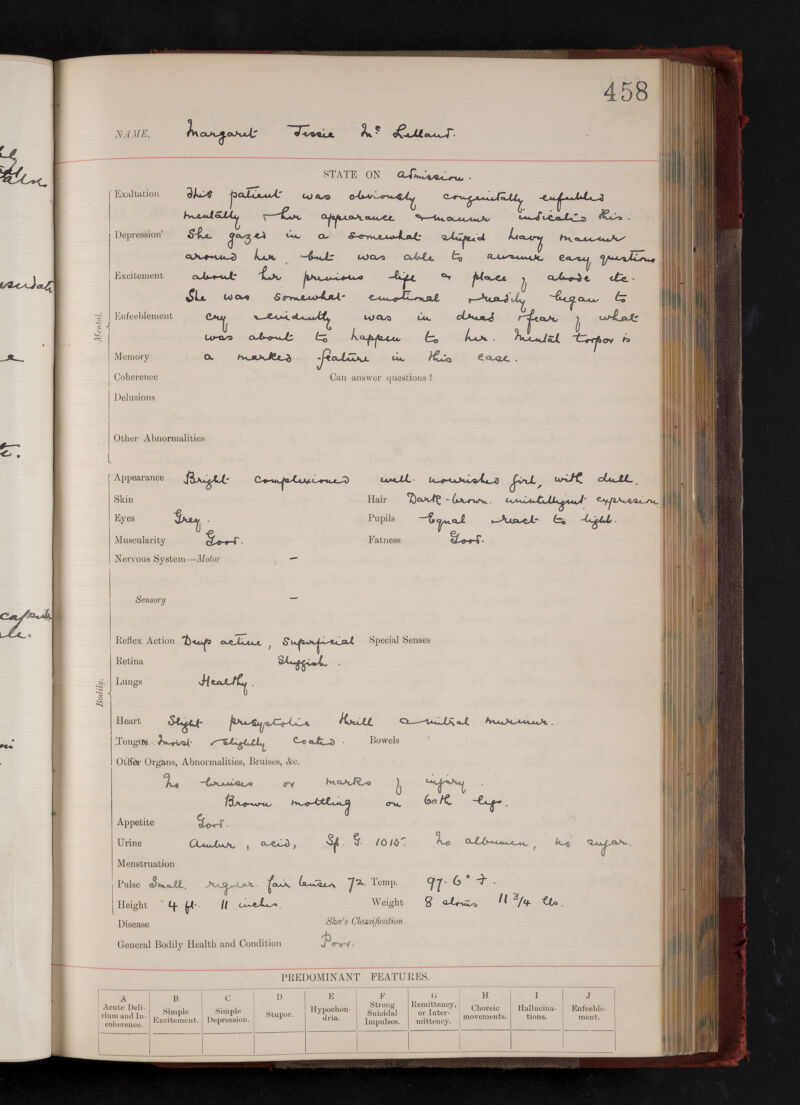 458
NAME, Margaret Jessie McLelland.
STATE ON admission.
Mental.
Exaltation This patient was obviously congenitally enfeebled
mentally & her appearance & manner indicates this.
Depression She gazed in a somewhat stupid heavy manner
around her, but was able to answer easy questions
Excitement about her previous life or place of abode etc.
She was somewhat emotional & readily began to
Enfeeblement cry & evidently was in dread & fear of what
was about to happen to her. Mental torpor is
Memory a marked feature in this case.
Coherence Can answer questions?
Delusions
Other Abnormalities
Bodily.
Appearance Bright complexioned well-nourished girl, with dull,
Skin Hair Dark-brown. unintelligent expression
Eyes Grey. Pupils Equal & react to light.
Muscularity Good. Fatness Good.
Nervous System—Motor —
Sensory —
Reflex Action Deep active, Superficial Special Senses
Retina Sluggish.
Lungs Healthy.
Heart Slight presystolic thrill & mitral murmur.
Tongue Moist & slightly coated. Bowels
Other Organs, Abnormalities, Bruises, &c.
No bruises or marks of injury.
Brown mottling on both legs.
Appetite Good.
Urine Amber, acid, Sp. G. 1015. No albumen, no sugar.
Menstruation
Pulse Small, regular. fair tension 72. Temp. 97.6° F.
Height 4 ft. 11 inches. Weight 8 stones 11 3/4 lbs.
Disease Skae's Classification
General Bodily Health and Condition Poor.
PREDOMINANT FEATURES.
A B C D E F G H I J
Acute Delirium and Incoherence. Simple Excitement. Simple Depression. Stupor. Hypochondria. Strong Suicidal Impulses. Remittency, or Intermittency. Choreic movements. Hallucinations. Enfeeblement.